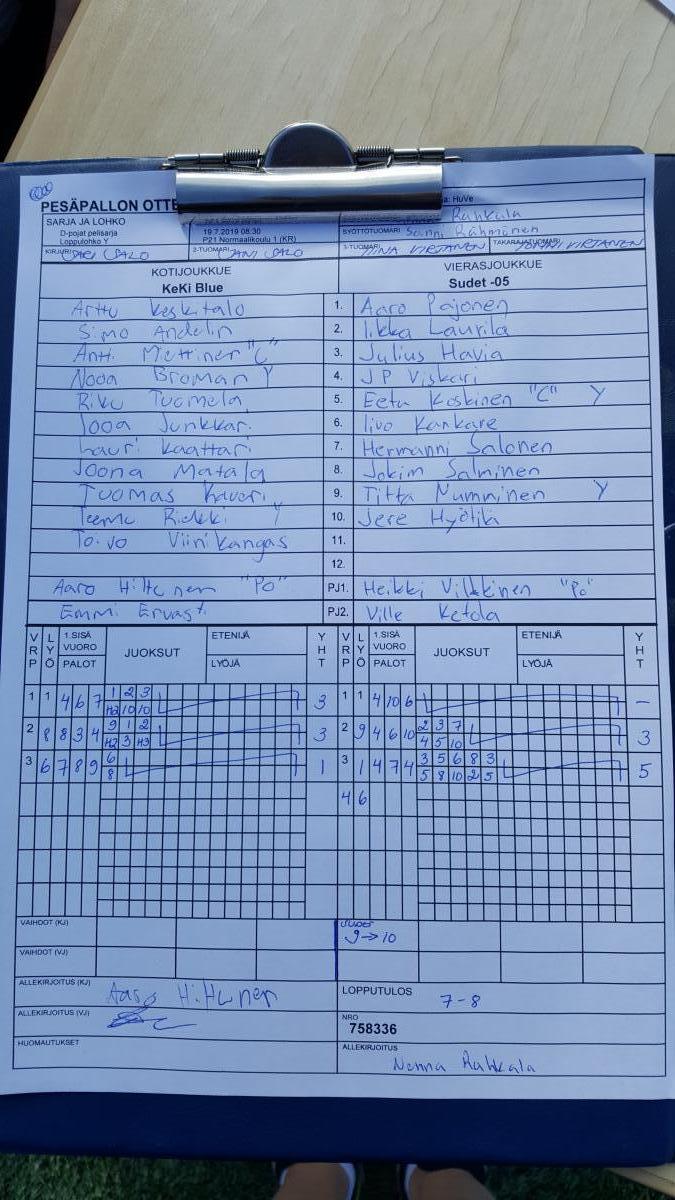 PESÄPALLON OTTE
a: HuVe
SARJA JA LOHKO
D-pojat pelisarja
Loppulohko Y
19.7.2019 08.30
P21 Normaalikoulu 1 (KR)
Rahkala
SYÖTTÖTUOMARI Sanni Rähmönen
KIRJURI SARI SALO
2-TUOMARI JANI SALO
3-TUOMARI TIINA VIRTANEN
TAKARAJATUOMARI VIRTANEN
KOTIJOUKKUE
KeKi Blue
VIERASJOUKKUE
Sudet -05
Arttu Keskitalo 1. Aaro Pajonen
Simo Andelin 2. Iikka Laurila
Antti Miettinen "C" 3. Julius Havia
Nooa Broman Y 4. JP Viskari
Riku Tuomela 5. Eetu Koskinen "C" Y
Jooa Junkkari 6. Iivo Kankare
Lauri Kaattari 7. Hermanni Salonen
Joona Matala 8. Jokim Salminen
Tuomas Kaveri 9. Titta Numminen Y
Teemu Riekki Y 10. Jere Hyötilä
Toivo Viinikangas 11.
12.
Aaro Hiltunen "Po" PJ1. Heikki Vilkkinen "Po"
Emmi Ervasti PJ2. Ville Ketola
VRP LYÖ 1.SISÄ VUORO PALOT JUOKSUT ETENIJÄ LYÖJÄ YHT VRP LYÖ 1.SISÄ VUORO PALOT JUOKSUT ETENIJÄ LYÖJÄ YHT
1 1 4 6 7 1 2 3 3 1 1 4 10 6 –
H2 10 10
2 8 8 3 4 9 1 2 3 2 9 4 6 10 2 3 7 3
H2 3 H3 4 5 10
3 6 7 8 9 6 1 3 1 4 7 4 3 5 6 8 3 5
8 5 8 10 2 5
4 6
VAIHDOT (KJ)
9→10
VAIHDOT (VJ)
ALLEKIRJOITUS (KJ) Aaro Hiltunen
LOPPUTULOS 7-8
ALLEKIRJOITUS (VJ)
NRO
758336
HUOMAUTUKSET
ALLEKIRJOITUS
Nenna Rahkala